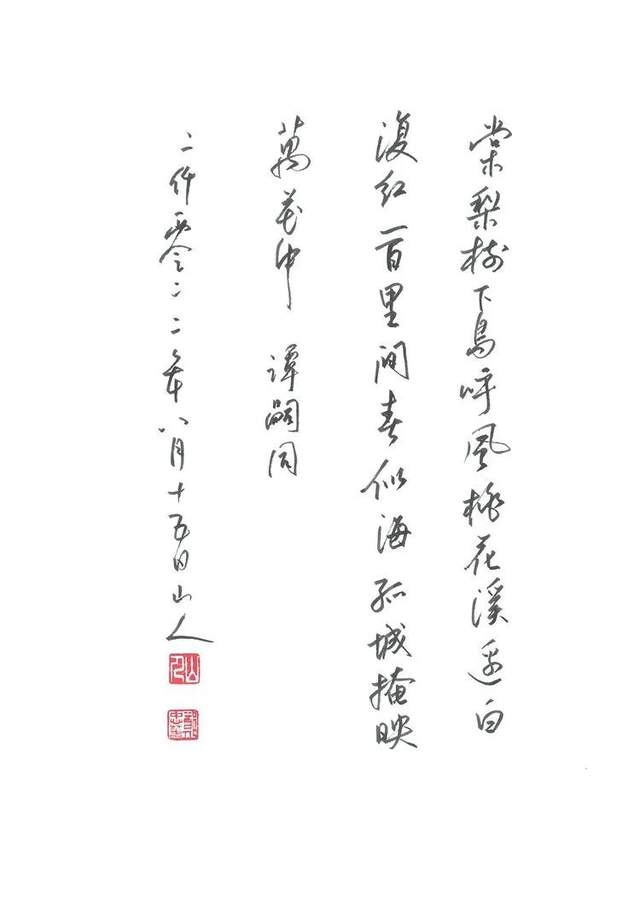 棠梨樹下鳥呼風桃花溪邊白
復紅一百里間春似海孤城掩映
萬花中 譚嗣同
二仟零二二年八月十五日山人
山人